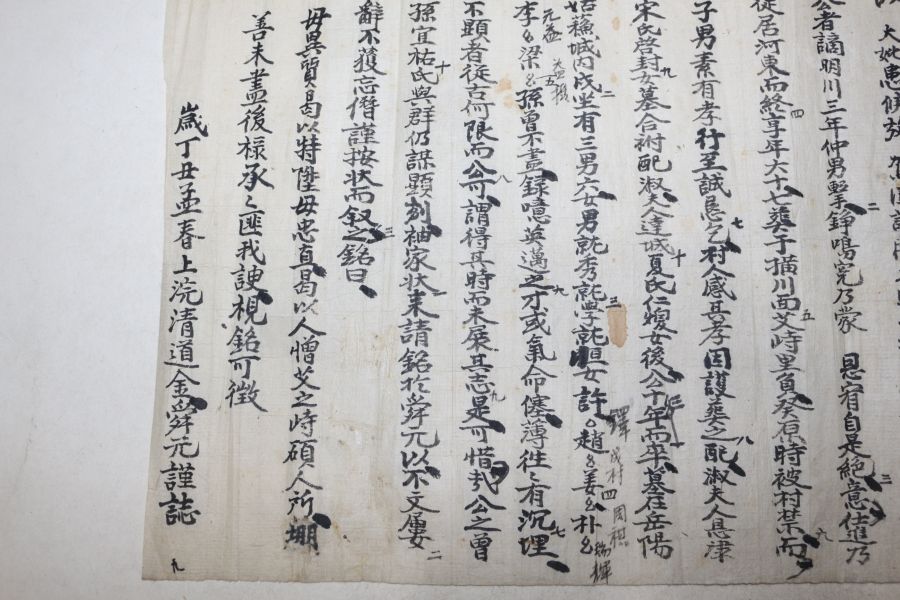 大妣
公者謫明川三年仲男擊錚鳴寃乃蒙 恩宥自是絶意仕進乃
從居河東而終享年六十七葬于橫川面艾峙里負癸原時被村禁而
子男素有孝行至誠恳乞村人感其孝因護葬之配淑夫人
宋氏啓封女墓合祔配淑夫人達城夏氏仁 女後公十年而卒墓在岳陽
姑蘇城内戌坐有三男六女男就秀就學就 女許 趙 姜 朴
李 梁 孫曾不盡錄噫英邁之才或氣命塞薄往〻有沉埋
不顯者從古何限而公可謂得其時而未展其志是可惜哉公之曾
孫宜祐氏與群仍謀顯刻袖家狀來請銘於舜元以不文屢
辭不獲忘僭謹按狀而叙之銘曰
毋異質曷以特陞毋忠直曷以人憎艾之峙碩人所堋
善未盡後祿承〻匪我諛視銘可徵
歲丁丑孟春上浣清道金舜元謹誌